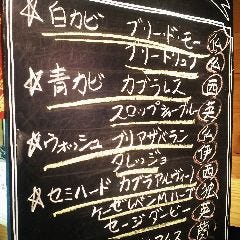 ☆白カビ ブリー・ド・モー 仏
ブリードリュフ 仏
☆青カビ カブラレス 西
スロップシャーブルー 英
☆ウォッシュ ブリアサバラン 仏
タレッジョ 伊
☆セミハード カブラアルヴィーノ 西
セージダービー 英